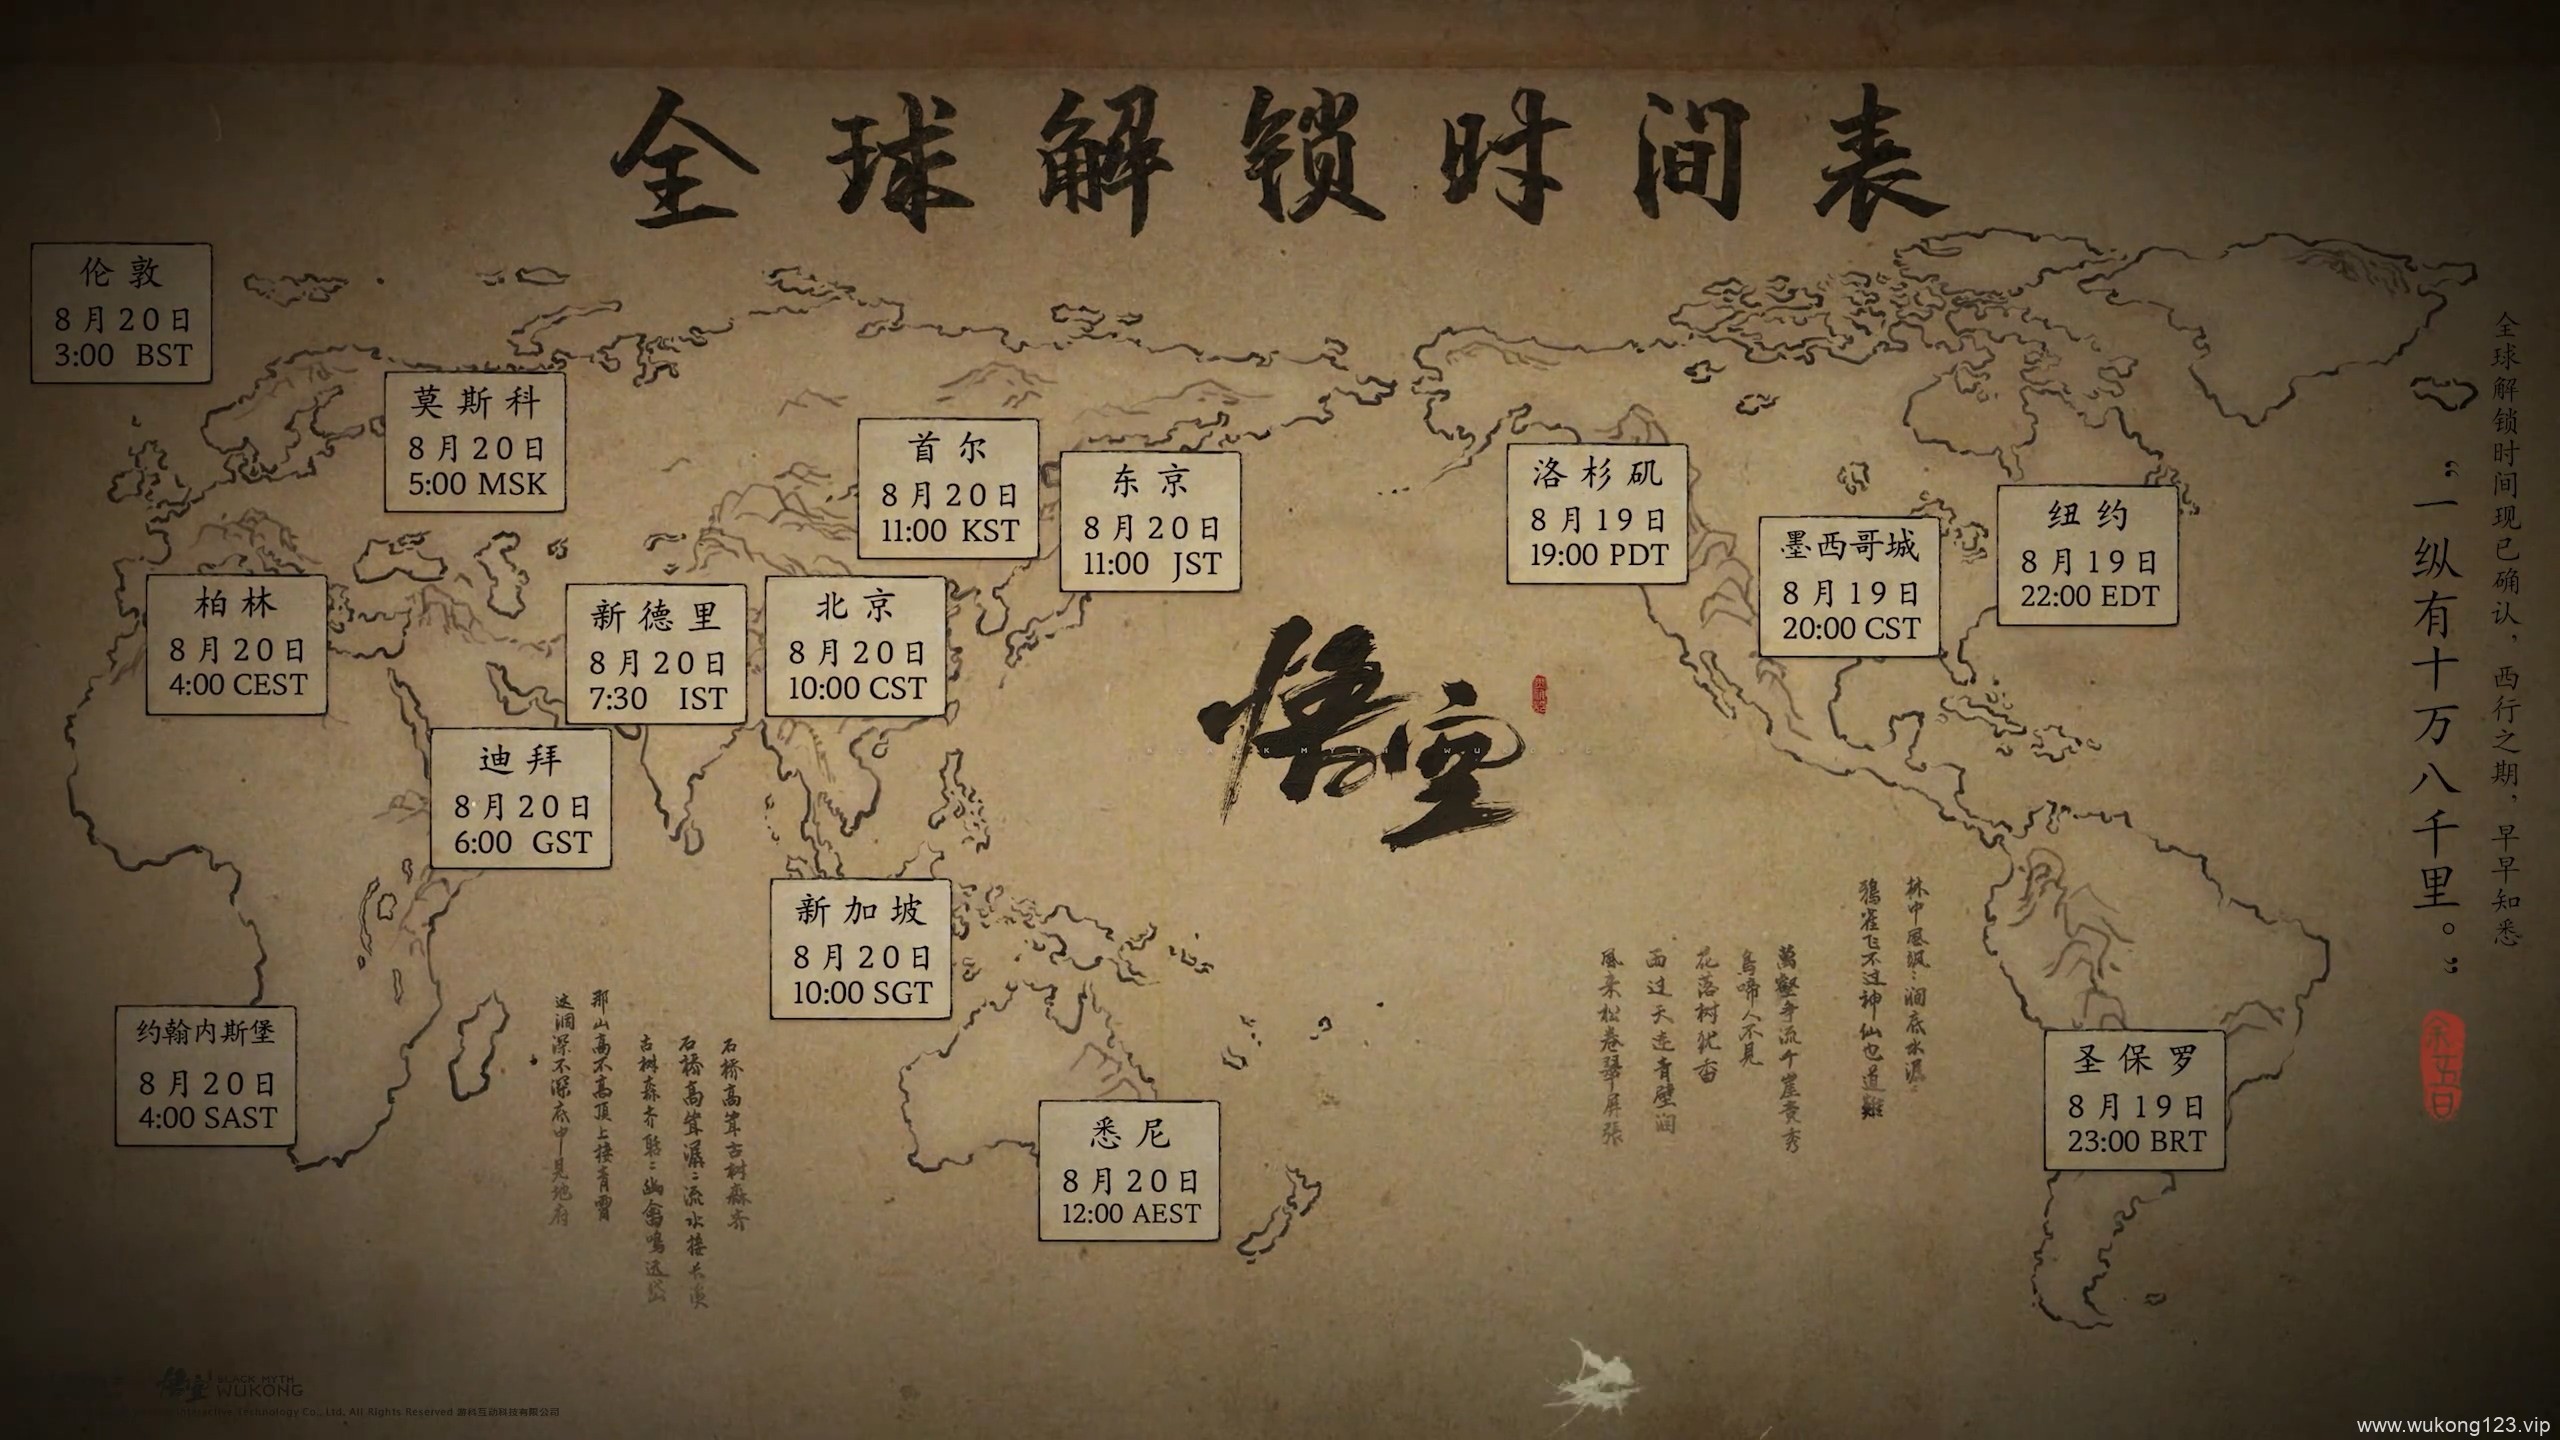 全球解锁时间表
伦敦
8月20日
3:00 BST
莫斯科
8月20日
5:00 MSK
首尔
8月20日
11:00 KST
东京
8月20日
11:00 JST
洛杉矶
8月19日
19:00 PDT
墨西哥城
8月19日
20:00 CST
纽约
8月19日
22:00 EDT
柏林
8月20日
4:00 CEST
新德里
8月20日
7:30 IST
北京
8月20日
10:00 CST
迪拜
8月20日
6:00 GST
新加坡
8月20日
10:00 SGT
约翰内斯堡
8月20日
4:00 SAST
悉尼
8月20日
12:00 AEST
圣保罗
8月19日
23:00 BRT
悟空
全球解锁时间现已确认，西行之期，早早知悉
“一纵有十万八千里。”
那山高不高顶上接青霄
这洞深不深底中见地府
石桥高耸古树森齐
石桥高耸潺:流水接长溪
古树森齐聒:幽禽鸣远岱
林中风飒:涧底水潺:
鸦雀飞不过神仙也道难
萬壑争流千崖竞秀
鸟啼人不见
花落树犹香
雨过天连青壁润
風来松卷翠屏張
悟空
BLACK MYTH
WUKONG
Interactive Technology Co., Ltd. All Rights Reserved 游科互动科技有限公司
www.wukong123.vip